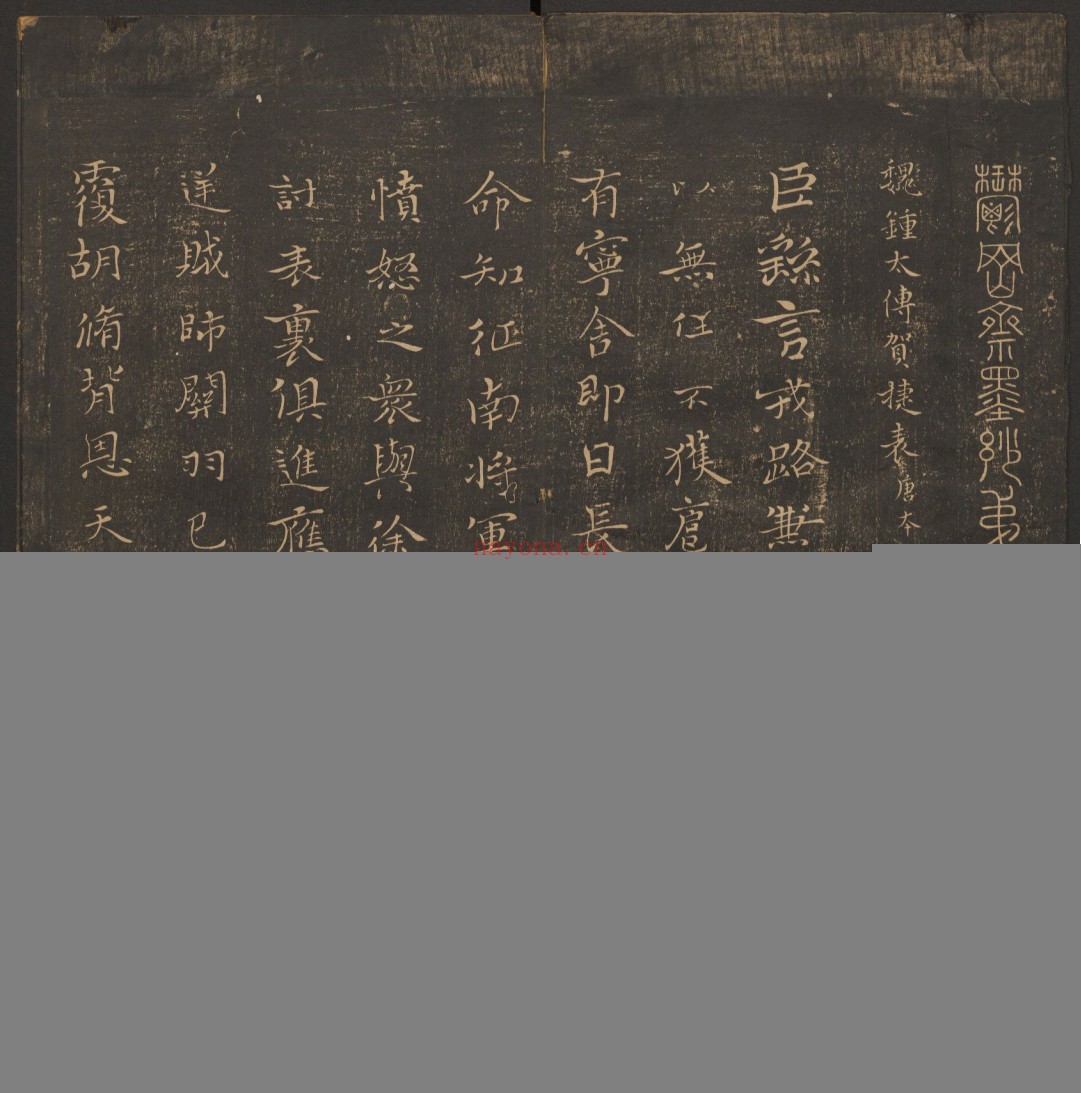 鬱岡齋墨玅弟
魏鍾太傅賀捷表唐本
臣繇言戎路兼
以無任不獲扈
有寧舍即日長
命知征南將軍
憤怒之衆與徐
討表裏俱進應
逆賊帥關羽已
覆胡脩背恩天
nayona.cn